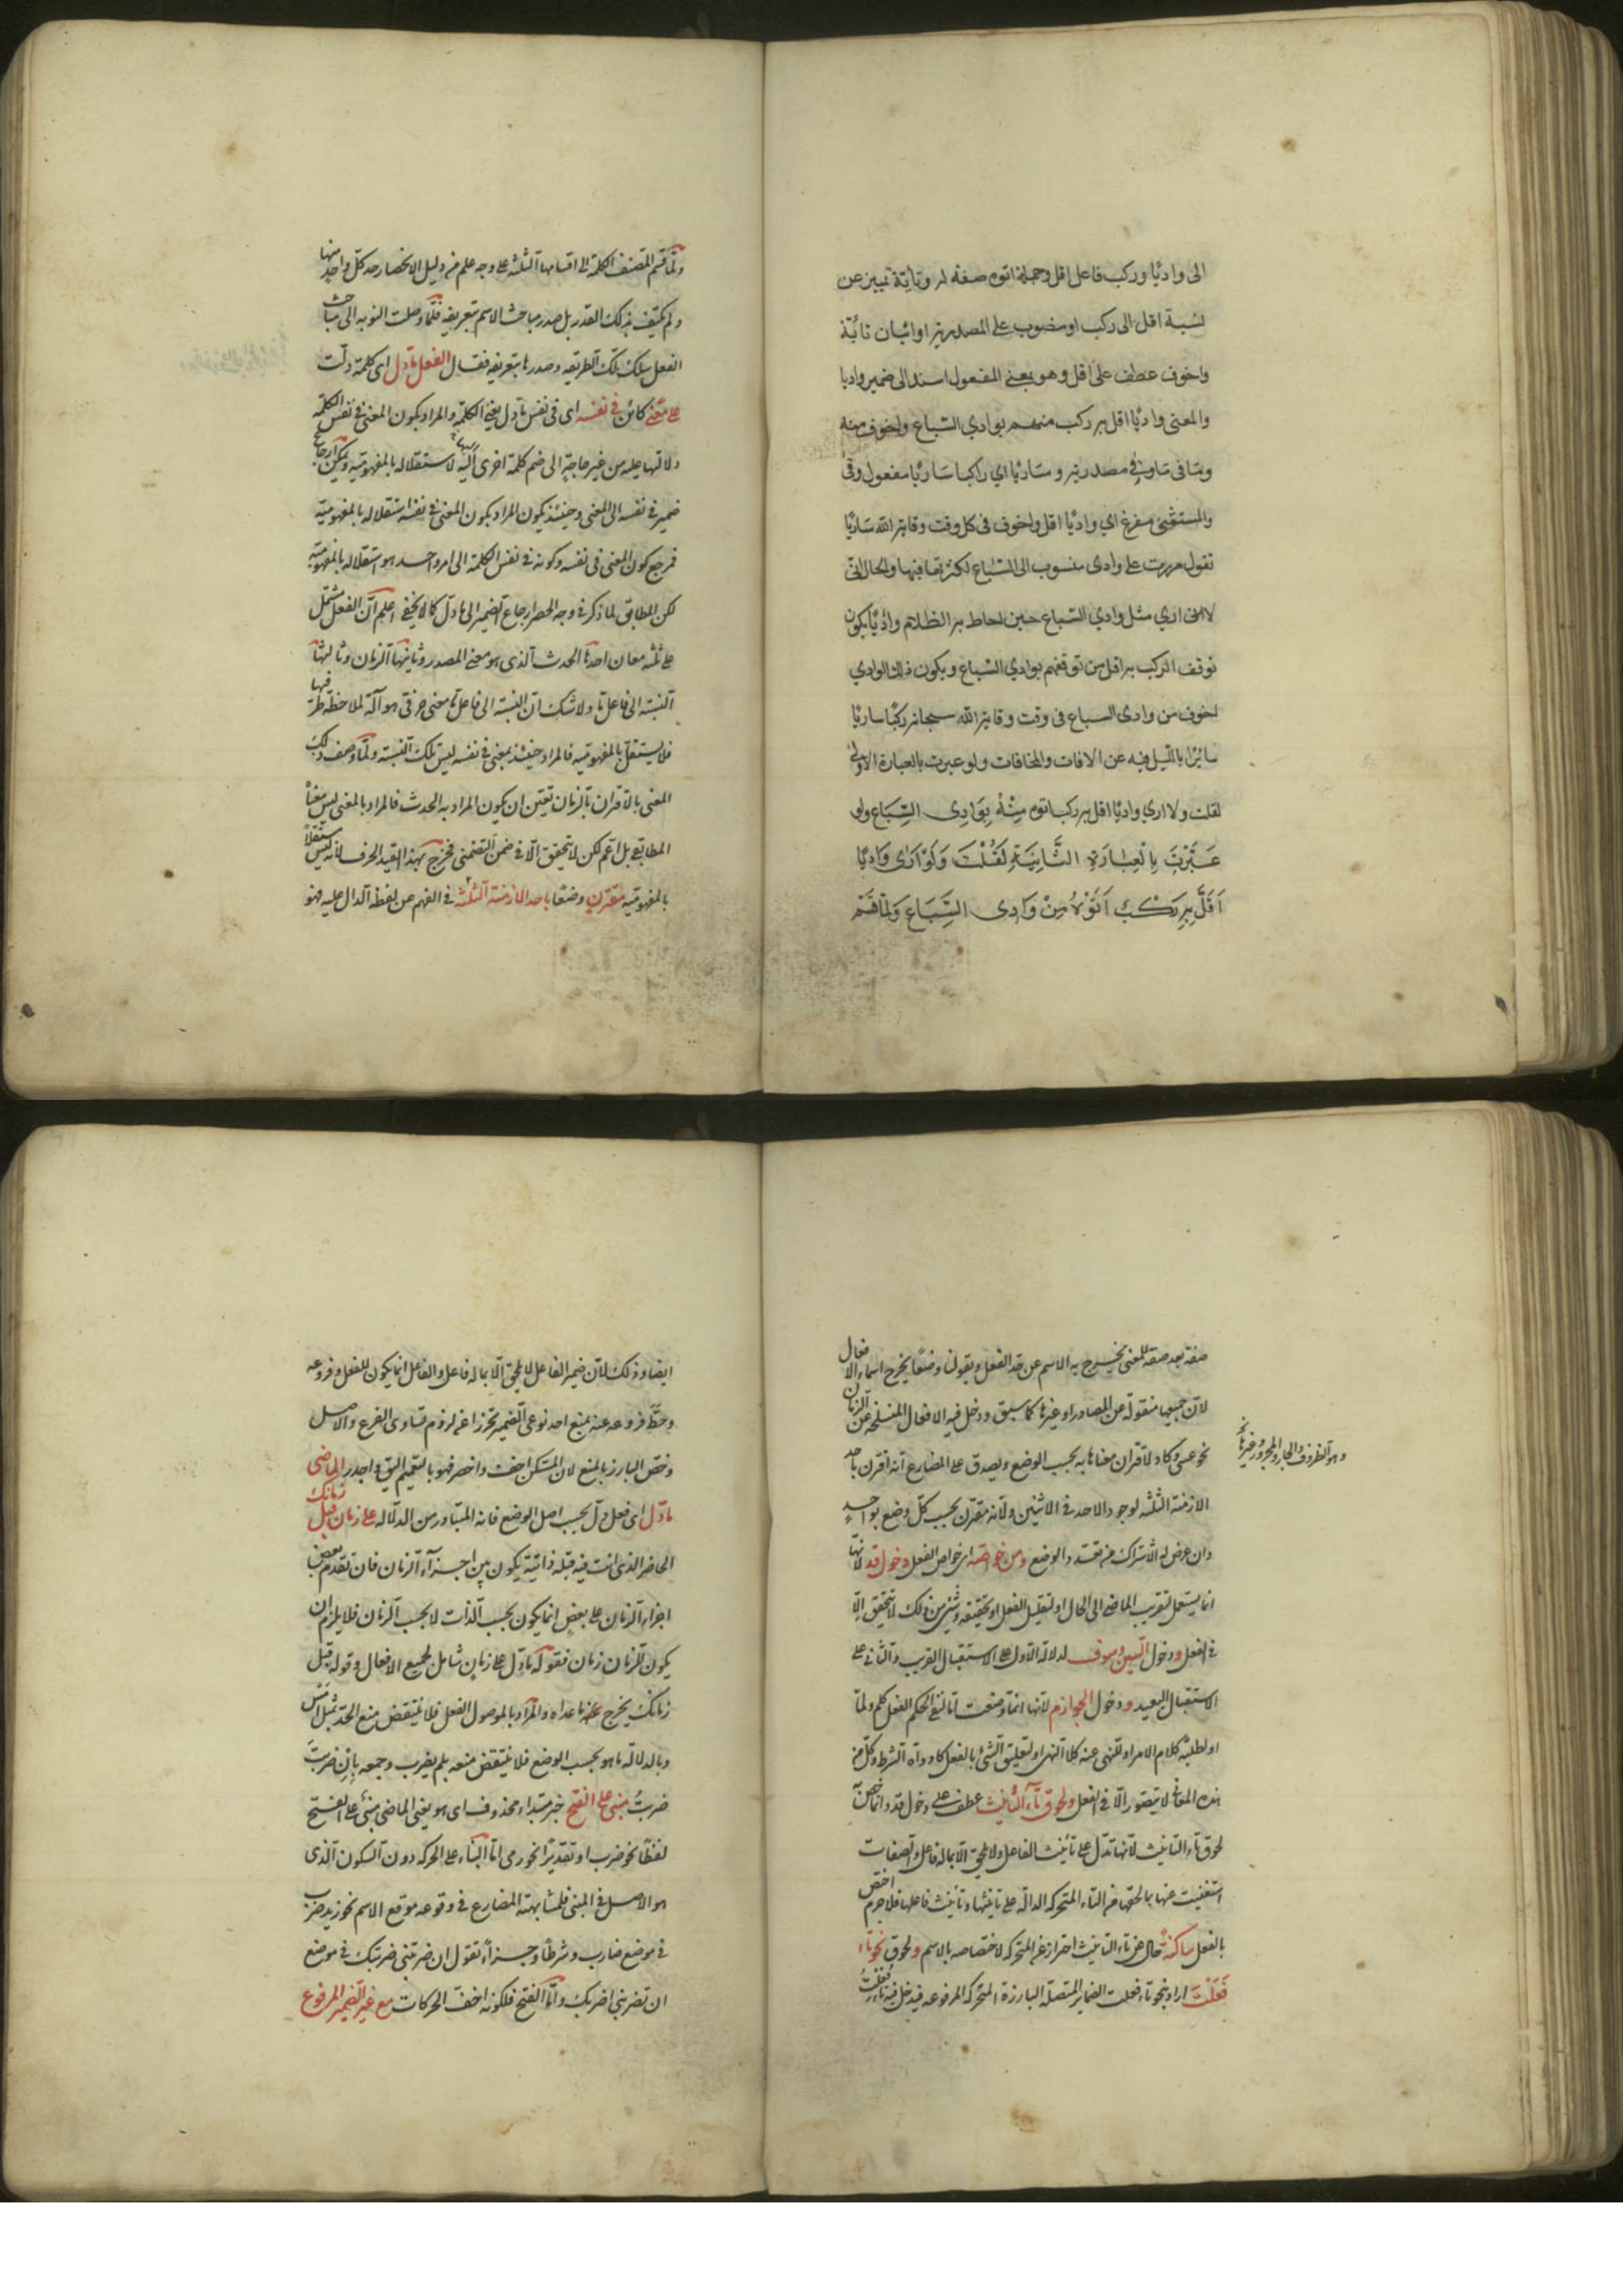 الى واديًا وركب فاعل اقل وجملة اتوه صفة له وتايّة تمييز عن
نسبة اقل الى ركب او منصوب على المصدرية او اتيان تائيّة
واخوف عطف على اقل وهو بمعنى المفعول اسند الى ضمير واديا
والمعنى واديًا اقل به ركب منهم بوادي السباع واخوف منه
وما فى ماوقى مصدرية وساريًا اي راكبا ساريًا مفعول وقى
والمستثنى مفرغ اي واديًا اقل واخوف فى كل وقت وقاية الله ساريًا
تقول مررت على وادى منسوب الى السباع لكثرتها فيها والحال انّى
لا ارى مثل وادي السباع حين احاط به الظلام واديًا يكون
توقف الركب به اقل من توقفهم بوادي السباع ويكون ذلك الوادي
اخوف من وادى السباع فى وقت وقاية الله سبحانه ركبًا ساريًا
سائرًا بالليل فيه عن الافات والمخافات ولو عبرت بالعبارة الاولى
لقلت ولا اري واديًا اقل به ركب اتوه مِنْهُ بِوَادِى السِّبَاع ولو
عَبَّرْتَ بِالْعِبَارَةِ الثَّانِيَةِ لَقُلْتَ وَلَا اَرٰى وَادِيًا
اَقَلَّ بِهِ رَكْبٌ اَتَوْهُ مِنْ وَادِى السِّبَاعِ وَلَمَّا قَسَّمَ
ولمّا قسم المصنف الكلمة الى اقسامها الثلثة على وجه علم من دليل الانحصار حد كل واحد منها
ولم يكتف بذلك القدر بل صدر مباحث الاسم بتعريفه فلمّا وصلت النوبة الى مباحث
الفعل سلك تلك الطريقه وصدرها بتعريفه فقال الفعل ما دل اى كلمة دلّت
على معنى كائن فى نفسه اى فى نفس ما دل يعنى الكلمة والمراد بكون المعنى فى نفس الكلمه
دلالتها عليه من غير حاجة الى ضم كلمة اخرى اليها لاستقلاله بالمفهومية ويمكن ارجاع
ضمير فى نفسه الى المعنى وحينئذ يكون المراد بكون المعنى فى نفسه استقلاله بالمفهومية
فمرجع كون المعنى فى نفسه وكونه فى نفس الكلمة الى امر واحد هو استقلاله بالمفهومية
لكن المطابق لما ذكر فى وجه الحصر ارجاع الضمير الى ما دلّ كما لا يخفى اعلم انّ الفعل مشتمل
على ثلثه معان احدها الحدث الذى هو معنى المصدر وثانيها الزمان وثالثها
النسبة الى فاعل ما ولا شك ان النسبة الى فاعل ما معنى حرفى هو آلة لملاحظة طرفيها
فلا يستقل بالمفهوميه فالمراد حينئذ بمعنى فى نفسه ليس تلك النسبة ولمّا وصف ذلك
المعنى بالاقتران بالزمان تعيّن ان يكون المراد به الحدث فالمراد بالمعنى ليس معناه
المطابقى بل اعم لكن لا يتحقق الّا فى ضمن التضمنى فخرج بهذا القيد الحرف لانه ليس مستقلًا
بالمفهومية مقترن وضعًا باحد الازمنة الثلثة فى الفهم عن لفظه الدال عليه فهو
صفة بعد صفة للمعنى يخرج به الاسم عن حد الفعل وبقولنا وضعًا يخرج اسماء الافعال
لانّ جميعها منقولة عن المصادر او غيرها كما سبق ودخل فيه الافعال المنسلخة عن الزمان
نحو عسى وكاد لاقتران معناها به بحسب الوضع ويصدق على المضارع انه اقترن باحد
الازمنة الثلثة لوجود الاحد فى الاثنين ولانه مقترن بحسب كلّ وضع بواحدٍ
وان عرض له الاشتراك من تعدد الوضع ومن خواصّه اى خواص الفعل دخول قد لانّها
انما يستعمل لتقريب الماضى الى الحال او لتقليل الفعل او تحقيقه وشئ من ذلك لا يتحقق الّا
فى الفعل ودخول السين وسوف لدلالة الاول على الاستقبال القريب والثانى على
الاستقبال البعيد ودخول الجوازم لانها انما وضعت امّا لنفى الحكم الفعل كلم ولمّا
او لطلبه كلام الامر او للنهى عنه كلا النهى او لتعليق الشئ بالفعل كادواة الشرط وكل من
هذه المعانى لا يتصور الّا فى الفعل ولحوق تاء التأنيث عطف على دخول قد وانما خصّ
لحوق تاء التانيث لانها تدلّ على تأنيث الفاعل ولا يلحق الّا بما له فاعل والصفات
استغنيت عنها بما لحقها من التاء المتحركة الدالة على تانيثها وتأنيث فاعلها فلا جرم اختص
بالفعل ساكنة حال عن تاء التانيث احتراز عن المتحركه لاختصاصه بالاسم ولحوق نحو تاء
فَعَلْتَ اراد بنحو تاء فعلت الضماير المتصلة البارزة المتحركة المرفوعه فيدخل فيه تاء فَعَلْتُ
وهو الظروف والجار والمجرور وغيرها
ايضا وذلك لانّ ضمير الفاعل لا يلحق الّا بما له فاعل والفاعل انما يكون للفعل وفروعه
وحطّ فروعه عنه بمنع احد نوعى الضمير تحرزا عن لزوم تساوى الفرع والاصل
وخصّ البارز بالمنع لان المستكن اخفّ واخصر فهو بالتعميم اليق واجدر الماضى
ما دل اى فعل دلّ بحسب اصل الوضع فانه المتبادر من الدلاله على زمان قبل زمانك
الحاضر الذى انت فيه قبلة ذاتية يكون بين اجزاء الزمان فان تقدم بعض
اجزاء الزمان على بعض انما يكون بحسب الذات لا بحسب الزمان فلا يلزم ان
يكون للزمان زمان فقوله ما دل على زمان شامل لجميع الافعال وقوله قبل
زمانك يخرج عنه ما عداه والمراد بالموصول الفعل فلا ينتقض منع الحد بمثل امس
وبالدلالة ما هو بحسب الوضع فلا ينتقض منعه بلم يضرب وجمعه بإن ضربتَ
ضربتُ مبنى على الفتح خبر مبتداء محذوف اى هو يعنى الماضى مبنى على الفتح
لفظًا نحو ضرب او تقديرًا نحو رمى امّا البناء على الحركه دون السكون الذى
هو الاصل فى المبنى فلمشابهته المضارع فى وقوعه موقع الاسم نحو زيد ضرب
فى موضع ضارب وشرطًا وجزاءً تقول ان ضربتنى ضربتك فى موضع
ان تضربنى اضربك وامّا الفتح فلكونه اخف الحركات مع غير الضمير المرفوع